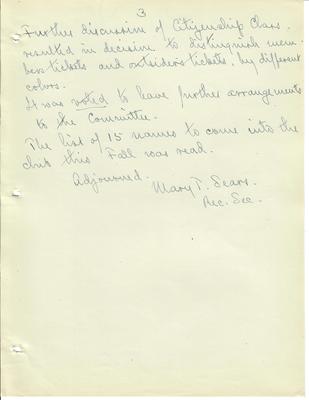 3
Further discussion of Citizenship Class
resulted in decision to distinguish mem-
bers tickets and outsiders tickets, by different
colors.
It was voted to leave further arrangements
to the Committee.
The list of 15 names to come into the
club this Fall was read.
Adjourned.
Mary T. Sears.
Rec. Sec.